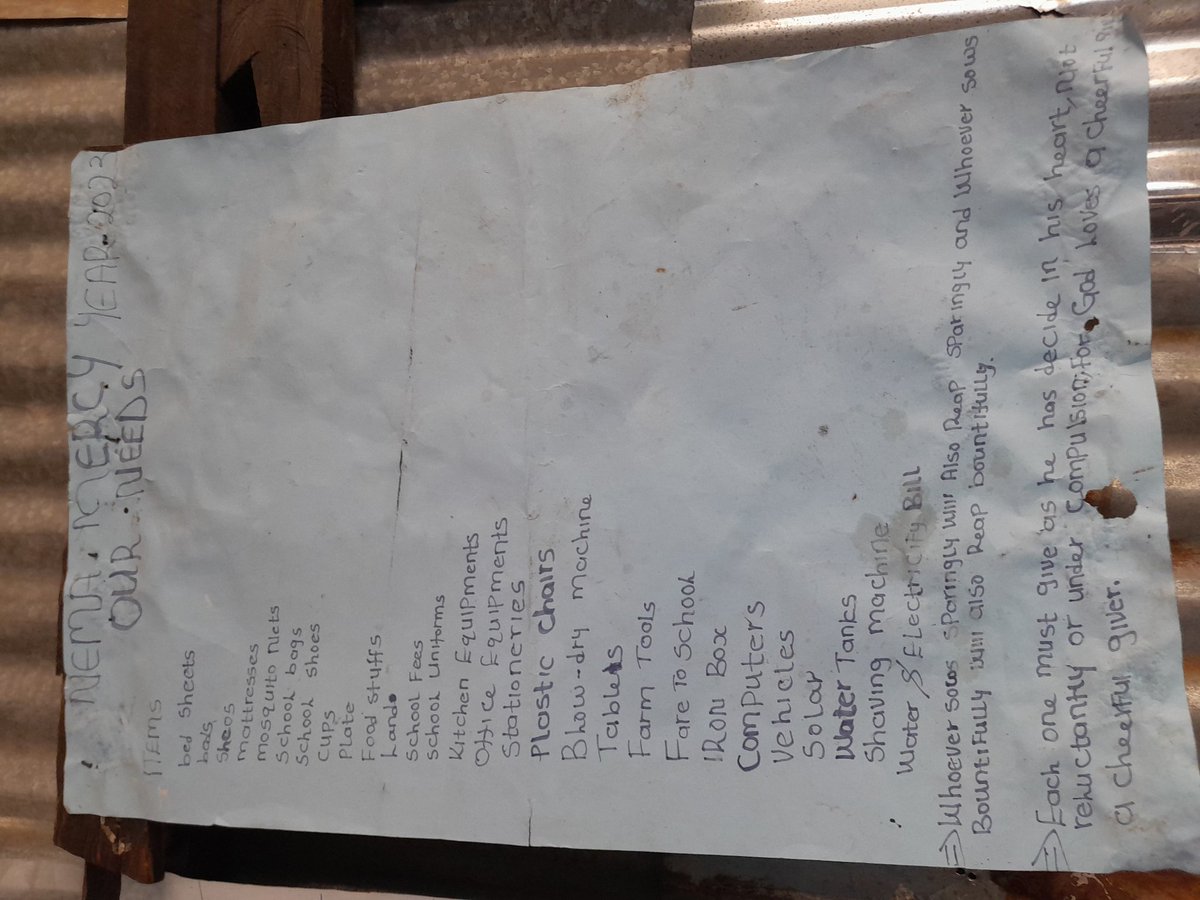 NEEMA. MERCY YEAR. 2023
OUR. NEEDS
ITEMS
bed sheets
bads
Sheos
mattresses
mosquito Nets
School bags
School shoes
Cups
Plate
Food Stuffs
Land
School Fees
School Uniforms
Kitchen Equipments
Office Equipments
Stationeries
Plastic chairs
Blow-dry machine
Tablets
Farm Tools
Fare To School
IRon Box
Computers
Vehicles
Solar
Water Tanks
Shaving machine
Water & Electricity Bill
⇒ Whoever sows Sparingly will Also Reap Sparingly and Whoever sows
Bountifully will also Reap bountifully.
⇒ Each one must give as he has decide in his heart, Not
reluctantly or under compulsion, for God Loves a cheerful
a cheerful giver.